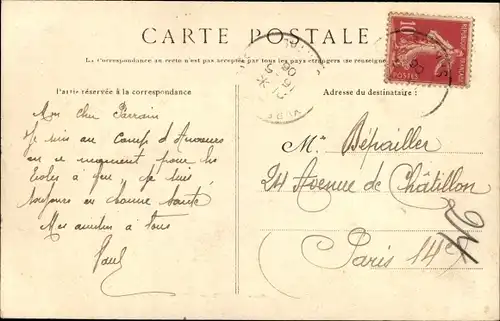 CARTE POSTALE
La Correspondance au recto n'est pas acceptée par tous les pays étrangers (se renseigner
Partie réservée à la correspondance
Adresse du destinataire :
10
POSTES
Mon cher Parrain
Je suis au Camp d'Auvours
en ce moment pour les
Ecoles à feu, je suis
toujours en bonne santé
Mes amitiés à tous
Paul
Mr Bépailler
24 Avenue de Châtillon
Paris 14e